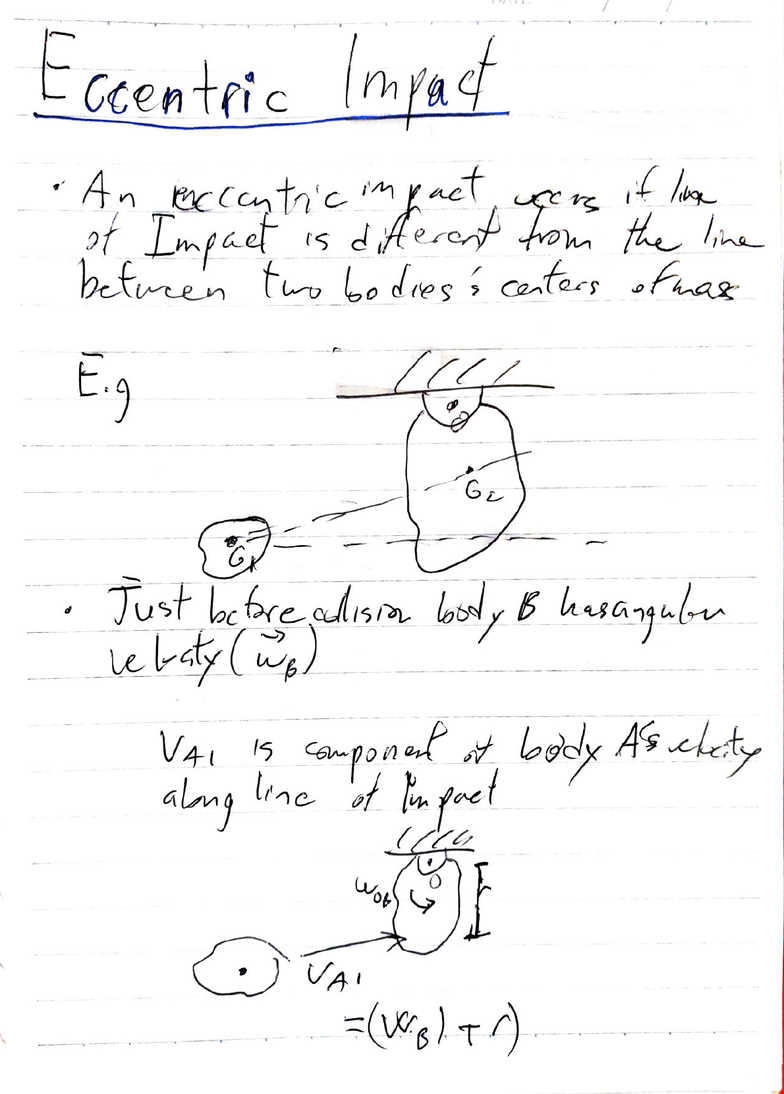 Eccentric Impact
• An eccentric impact occurs if line
of Impact is different from the line
between two bodies's centers of mass
E.g
O
G₂
G₁
• Just before collision body B has angular
velocity (w⃗_B)
V_A1 is component of body A's velocity
along line of Impact
O
r
V_A1
=(w_B)₁ + r)